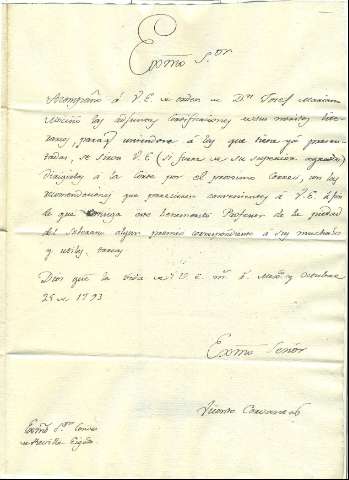 Exmo Sor
Acompaño á V.E. de orden de Dn Josef Mariano
Mociño las adjuntas Certificaciones de sus meritos lite-
rarios, para q uniendose á las que tiene ya presen-
tadas, se sirva V.E. (si fuere de su superior agrado)
dirigirlos á la Corte por el proximo Correo, con las
recomendaciones que parecieren convenientes á V.E. á fin
de que consiga este benemerito Profesor de la piedad
del Soberano algun premio correspondiente á sus muchas
y utiles tareas
Dios gue la vida de V.E. ms as Mexco y Octubre
25 de 1793
Exmo Señor
Vicente Cervantes
Exmo Sor Conde
de Revilla Gigedo